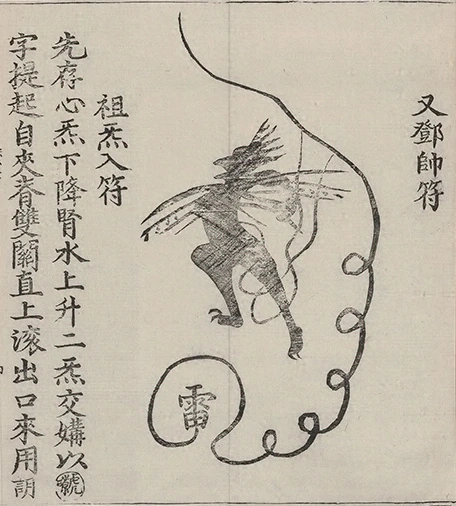 又鄧帥符
雷
祖炁入符
先存心炁下降腎水上升二炁交媾以號
字提起自夾脊雙關直上滚出口來用